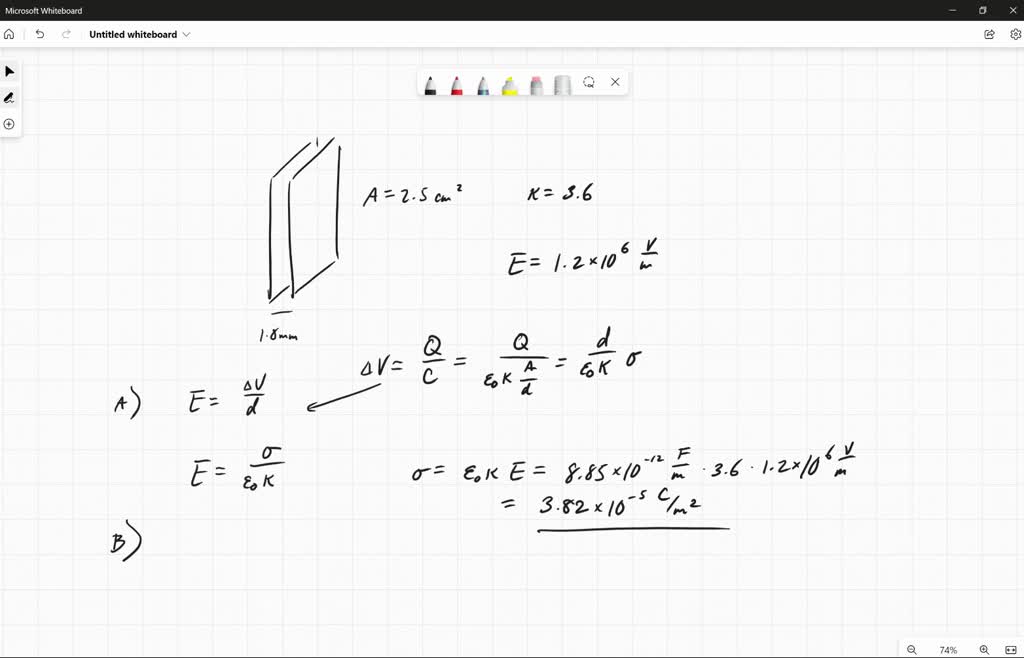 Microsoft Whiteboard
Untitled whiteboard
A = 2.5 cm² κ = 3.6
E = 1.2 × 10⁶ V/m
1.8mm
ΔV = Q/C = Q/(ε₀ κ A/d) = d/(ε₀ κ) σ
A) E = ΔV/d
E = σ/(ε₀ κ) σ = ε₀ κ E = 8.85 × 10⁻¹² F/m · 3.6 · 1.2 × 10⁶ V/m
= 3.82 × 10⁻⁵ C/m²
B)
74%